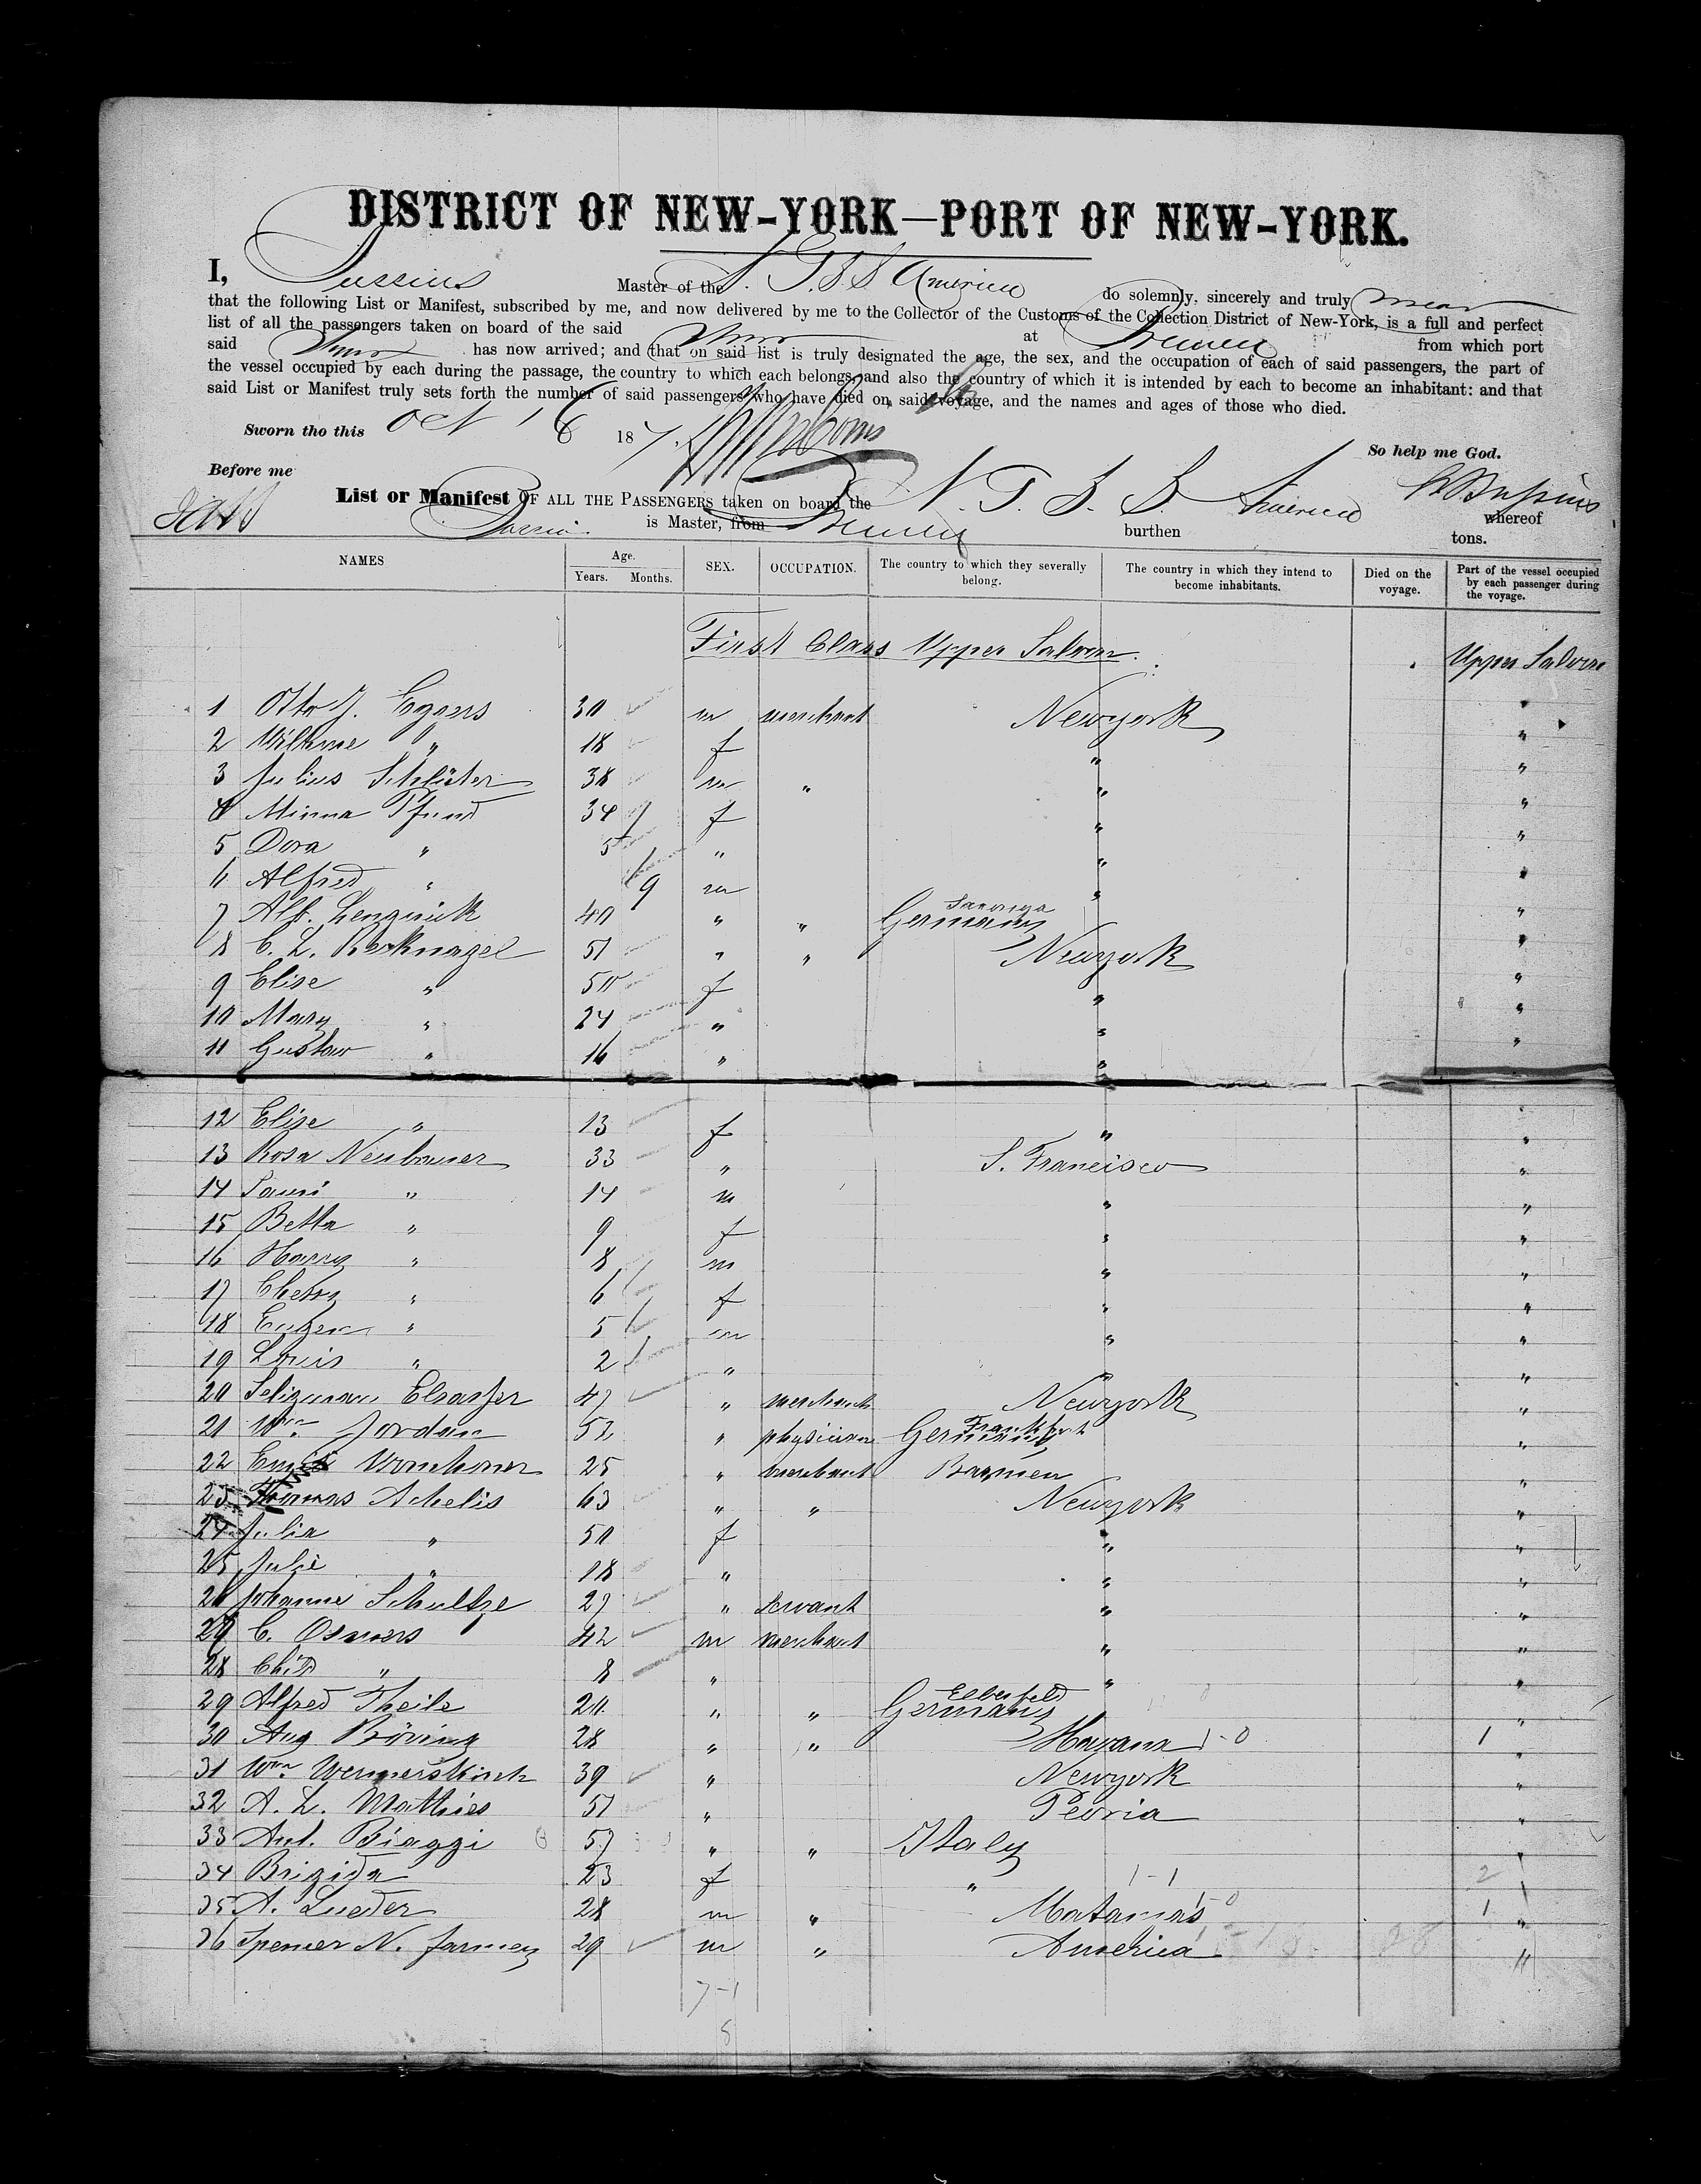 DISTRICT OF NEW-YORK—PORT OF NEW-YORK.
I, Bussius Master of the N. G. S S America do solemnly, sincerely and truly swear
that the following List or Manifest, subscribed by me, and now delivered by me to the Collector of the Customs of the Collection District of New-York, is a full and perfect
list of all the passengers taken on board of the said at Bremen from which port
said has now arrived; and that on said list is truly designated the age, the sex, and the occupation of each of said passengers, the part of
the vessel occupied by each during the passage, the country to which each belongs, and also the country of which it is intended by each to become an inhabitant: and that
said List or Manifest truly sets forth the number of said passengers who have died on said voyage, and the names and ages of those who died.
Sworn tho this Oct 16 187 So help me God.
Before me
List or Manifest OF ALL THE PASSENGERS taken on board the N. G. S. S. America whereof
is Master, from Bremen burthen tons.
NAMES Age. Years. Months. SEX. OCCUPATION. The country to which they severally belong. The country in which they intend to become inhabitants. Died on the voyage. Part of the vessel occupied by each passenger during the voyage.
First Class Upper Saloon. Upper Saloon
1 Otto J. Eggers 30 m merchant Newyork "
2 " 18 f " "
3 Julius Schlüter 38 m " " "
4 Minna Pfund 34 f " "
5 Dora " 5 " " "
6 Alfred " 9 m " "
7 Alb. 40 " " Germany "
8 C. L. Recknagel 51 " " Newyork "
9 Elise " 50 f " "
10 Mary " 24 " " "
11 Gustav " 16 " " "
12 Elise " 13 f " "
13 Rosa Neubauer 33 " S. Francisco "
14 " 14 m " "
15 Betta " 9 f " "
16 Harry " 8 m " "
17 " 6 f " "
18 Eugen " 5 m " "
19 Louis " 2 " " "
20 Seligmann Elsasser 47 " merchant Newyork "
21 Wm. Jordan 53 " physician Germany Frankfurt "
22 25 " merchant Barmen "
23 Thomas Achelis 63 " " Newyork "
24 Julia " 50 f " "
25 Julie " 18 " " "
26 Johanne Schultze 27 " Servant " "
27 C. Osmers 42 m merchant " "
28 Child " 8 " " "
29 Alfred Theile 20 " " Germany Elberfeld "
30 Aug Böving 28 " " Havana 1-0 1 "
31 Wm. Wennerskirch 39 " Newyork "
32 A. L. Matthies 51 " Peoria "
33 Ant. Biaggi 57 " " Italy "
34 Brigida 23 f " 1-1 2 "
35 A. Lueder 28 m " Matanzas 1-0 1 "
36 Spencer N. 29 m " America "
7-1
8